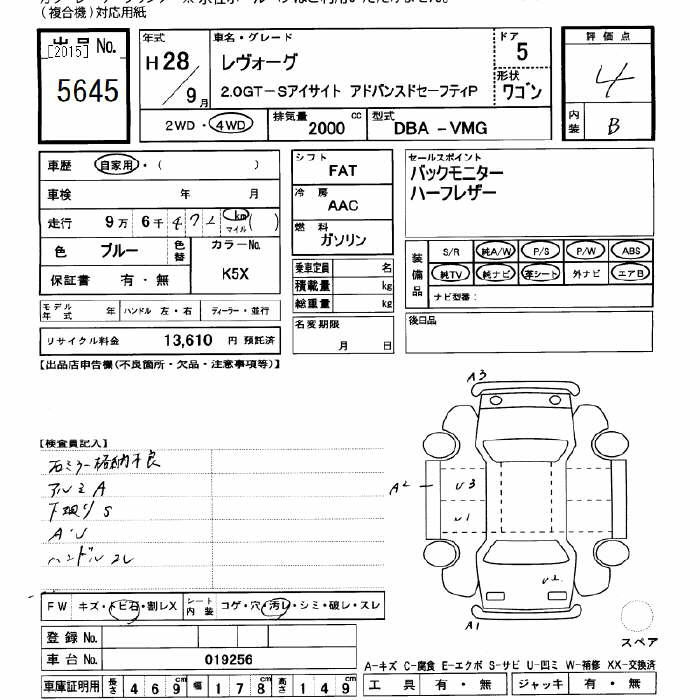 (複合機)対応用紙
出品 No.
[2015]
5645
年式
H28/9月
車名・グレード
レヴォーグ
2.0GT-Sアイサイト アドバンスドセーフティP
ドア
5
形状
ワゴン
評価点
4
内装
B
2WD・4WD
排気量
2000 cc
型式
DBA -VMG
車歴 自家用・( )
車検 年 月
走行 9万 6千 km マイル ( )
色 ブルー 色替
カラーNo.
K5X
保証書 有・無
シフト
FAT
冷房
AAC
燃料
ガソリン
セールスポイント
バックモニター
ハーフレザー
装備品
S/R 純A/W P/S P/W ABS
純TV 純ナビ 革シート 外ナビ エアB
ナビ型番:
乗車定員 名
積載量 kg
総重量 kg
モデル年式 年 ハンドル 左・右 ディーラー・並行
リサイクル料金 13,610 円 預託済
名変期限
月 日
後日品
【出品店申告欄(不良箇所・欠品・注意事項等)】
【検査員記入】
石ミラー格納不良
アルミA
下廻りS
A・U
ハンドルスレ
A3
A2
U3
U1
A1
FW キズ・トビ石・割レX
シート内装 コゲ・穴・汚レ・シミ・破レ・スレ
登録 No.
車台 No. 019256
車庫証明用 長さ 469cm 幅 178cm 高さ 149cm
スペア
A-キズ C-腐食 E-エクボ S-サビ U-凹ミ W-補修 XX-交換済
工具 有・無 ジャッキ 有・無